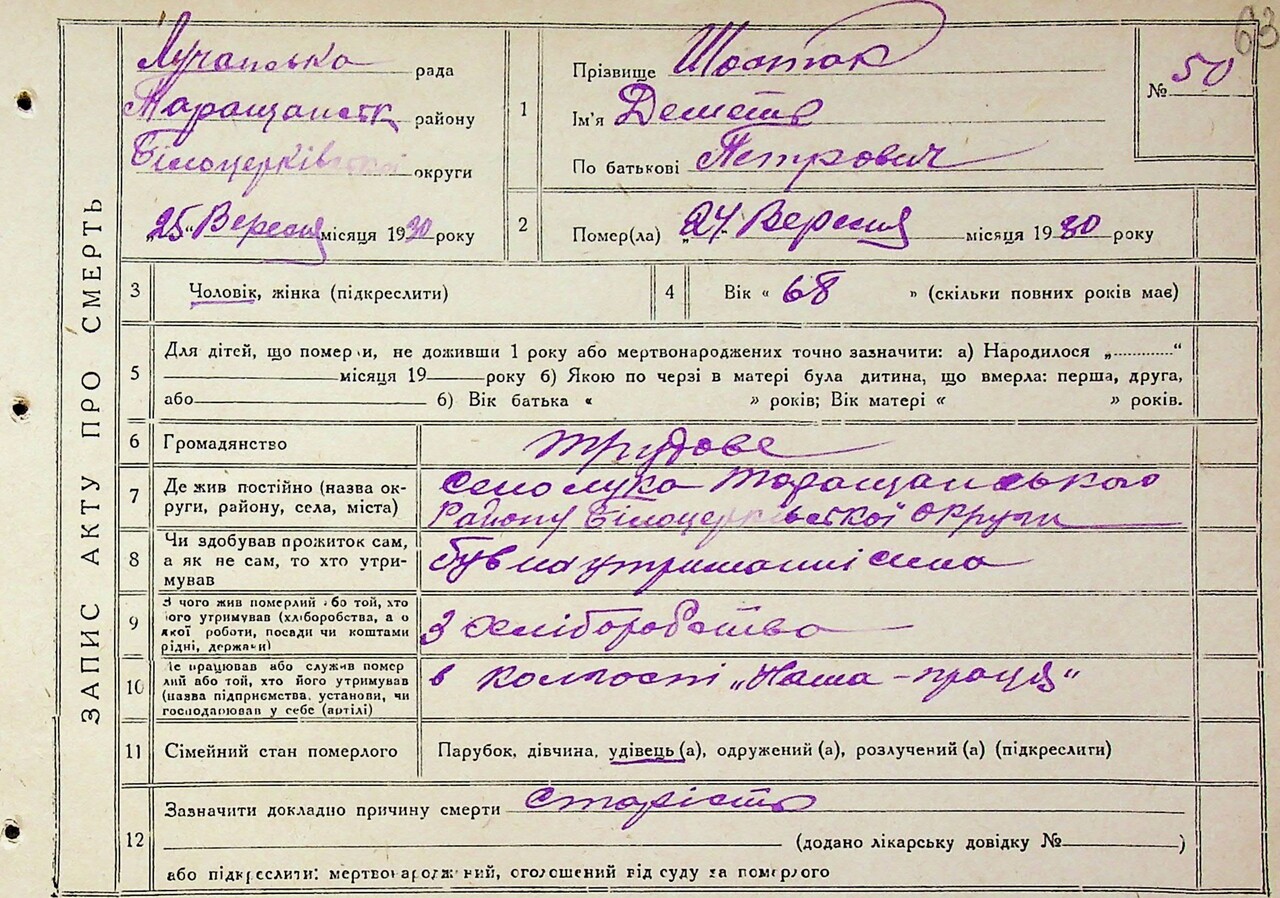 63
ЗАПИС АКТУ ПРО СМЕРТЬ
Лучанська рада
Таращанськ району
Білоцерківської округи
„25" Вересня місяця 1930 року
1
Прізвище Шостак
Ім'я Деметь
По батькові Петрович
№ 50
2
Помер(ла) „24" Вересня місяця 1930 року
3 Чоловік, жінка (підкреслити)
4 Вік « 68 » (скільки повних років має)
5
Для дітей, що померли, не доживши 1 року або мертвонароджених точно зазначити: а) Народилося „............“
місяця 19 року б) Якою по черзі в матері була дитина, що вмерла: перша, друга,
або б) Вік батька « » років; Вік матері « » років.
6 Громадянство трудове
7 Де жив постійно (назва ок-
руги, району, села, міста)
Село Лука Таращанського
Району Білоцерківської Округи
8
Чи здобував прожиток сам,
а як не сам, то хто утри-
мував
був на утриманні сина
9
З чого жив померлий або той, хто
його утримував (хліборобства, а о
якої роботи, посади чи коштами
рідні, держави)
З хліборобства
10
Де працював або служив помер
лий або той, хто його утримував
(назва підприємства, установи, чи
господарював у себе (артілі)
в колгоспі „Наша - праця“
11 Сімейний стан померлого Парубок, дівчина, удівець (а), одружений (а), розлучений (а) (підкреслити)
12
Зазначити докладно причину смерти старість
(додано лікарську довідку № )
або підкреслити: мертвонароджений, оголошений від суду за померлого